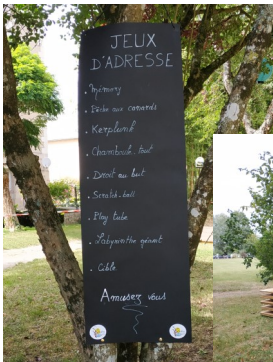 JEUX
D'ADRESSE
. Mémory
. Pêche aux canards
. Kerplunk
. Chamboule-tout
. Droit au but
. Scratch-ball
. Play tube
. Labyrinthe géant
. Cible
Amusez vous